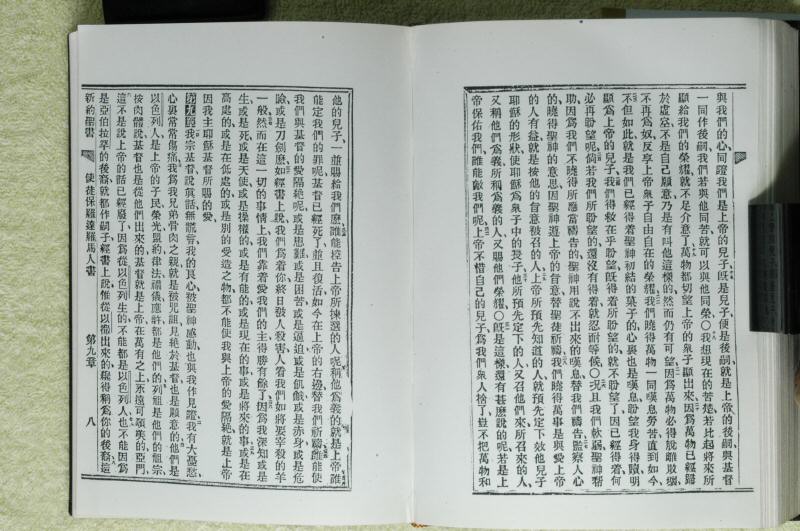 與我們的心同證我們是上帝的兒子旣是兒子便是後嗣就是上帝的後嗣與基督
一同作後嗣我們若與他同苦就可以與他同榮〇我想現在的苦楚若比起將來所
顯給我們的榮耀就不足介意了萬物都切望上帝的衆子顯出來因爲萬物必得脫離敗壞
不再爲奴反享上帝衆子自由自在的榮耀我們曉得萬物一同嘆息勞苦直到如今
不但如此就是我們已經得着聖神初結的菓子的心裏也是嘆息盼望我身得贖明
顯爲上帝的兒子我們得救在乎盼望旣得着所盼望的就不盼望了因已經得着何
必再盼望呢倘若我們所盼望的還沒有得着就忍耐等候〇況且我們軟弱聖神幫
助因爲我們不曉得所應當禱告的聖神用說不出來的嘆息替我們禱告鑒察人心
的曉得聖神的意思因聖神遵上帝的旨意替聖徒祈禱我們曉得萬事是與愛上帝
的人有益就是按他的旨意被召的人上帝所預先知道的人就預先定下效他兒子
耶穌的形狀使耶穌爲衆子中的長子他所預先定下的人又召他們來所召來的人
又稱他們爲義所稱爲義的人又賜他們榮耀〇旣是這樣還有甚麼說的呢若是上
帝保佑我們誰能敵我們呢上帝不惜自己的兒子爲我們衆人捨了豈不把萬物和
他的兒子一並賜給我們麼誰能控告上帝所揀選的人呢稱他爲義的就是上帝誰
能定我們的罪呢基督已經死了並且復活如今在上帝的右邊替我們祈禱誰能使
我們與基督的愛隔絕呢或是患難或是困苦或是逼迫或是飢餓或是赤身或是危
險或是刀劍麼如經書上說我們爲着你終日被人殺害人看我們如將要宰殺的羊
一般然而在這一切的事情上我們靠着愛我們的主得勝有餘了因爲我深知或是
生或是死或是天使或是操權的或是有能的或是現在的事或是將來的事或是在
高處的或是在低處的或是別的受造之物都不能使我與上帝的愛隔絕就是上帝
因我主耶穌基督所賜的愛
第九章我宗基督說眞話無謊言我的良心被聖神感動也與我作見證我有大憂愁
心裏常常傷痛我爲我兄弟骨肉之親就是被咒詛見絕於基督也是願意的他們是
以色列人是上帝的子民榮光盟約律法禮儀應許都是他們的列祖是他們的祖宗
按肉體說基督也是從他們出來的基督就是上帝在萬有之上永遠可頌美的亞們
這不是說上帝的話已經廢了因爲從以色列生的不能都是以色列人也不能因爲
是亞伯拉罕的後裔就都作嗣子經書上說惟從以撒出來的纔得稱爲你的後裔這
新約聖書 使徒保羅達羅馬人書 第九章 八